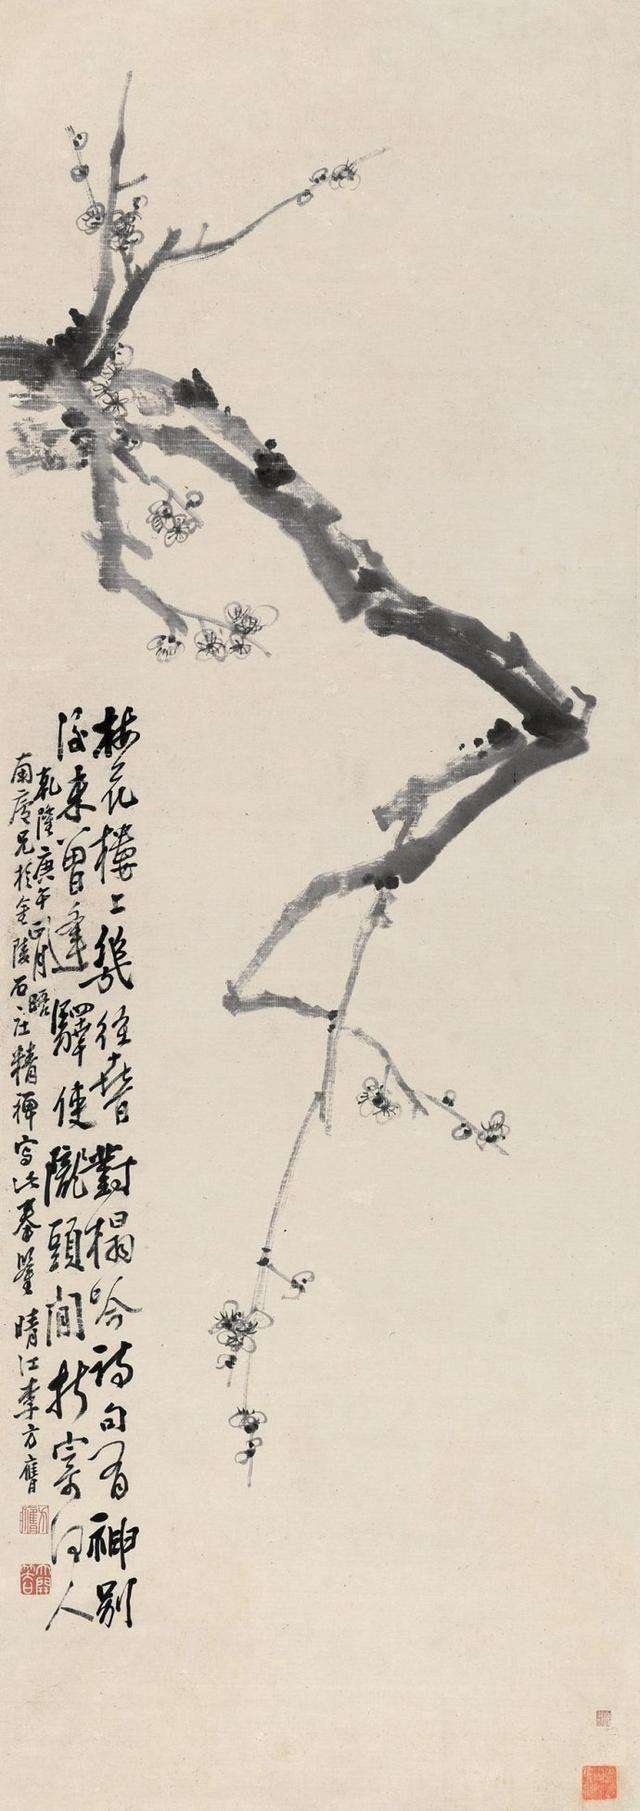 梅花樓上往昔對榻吟詩句有神別
後曾逢驛使隴頭閒折寄何人
乾隆庚午正月晤
南兄於金陵石庄精禪寫此奉鑒晴江李方膺